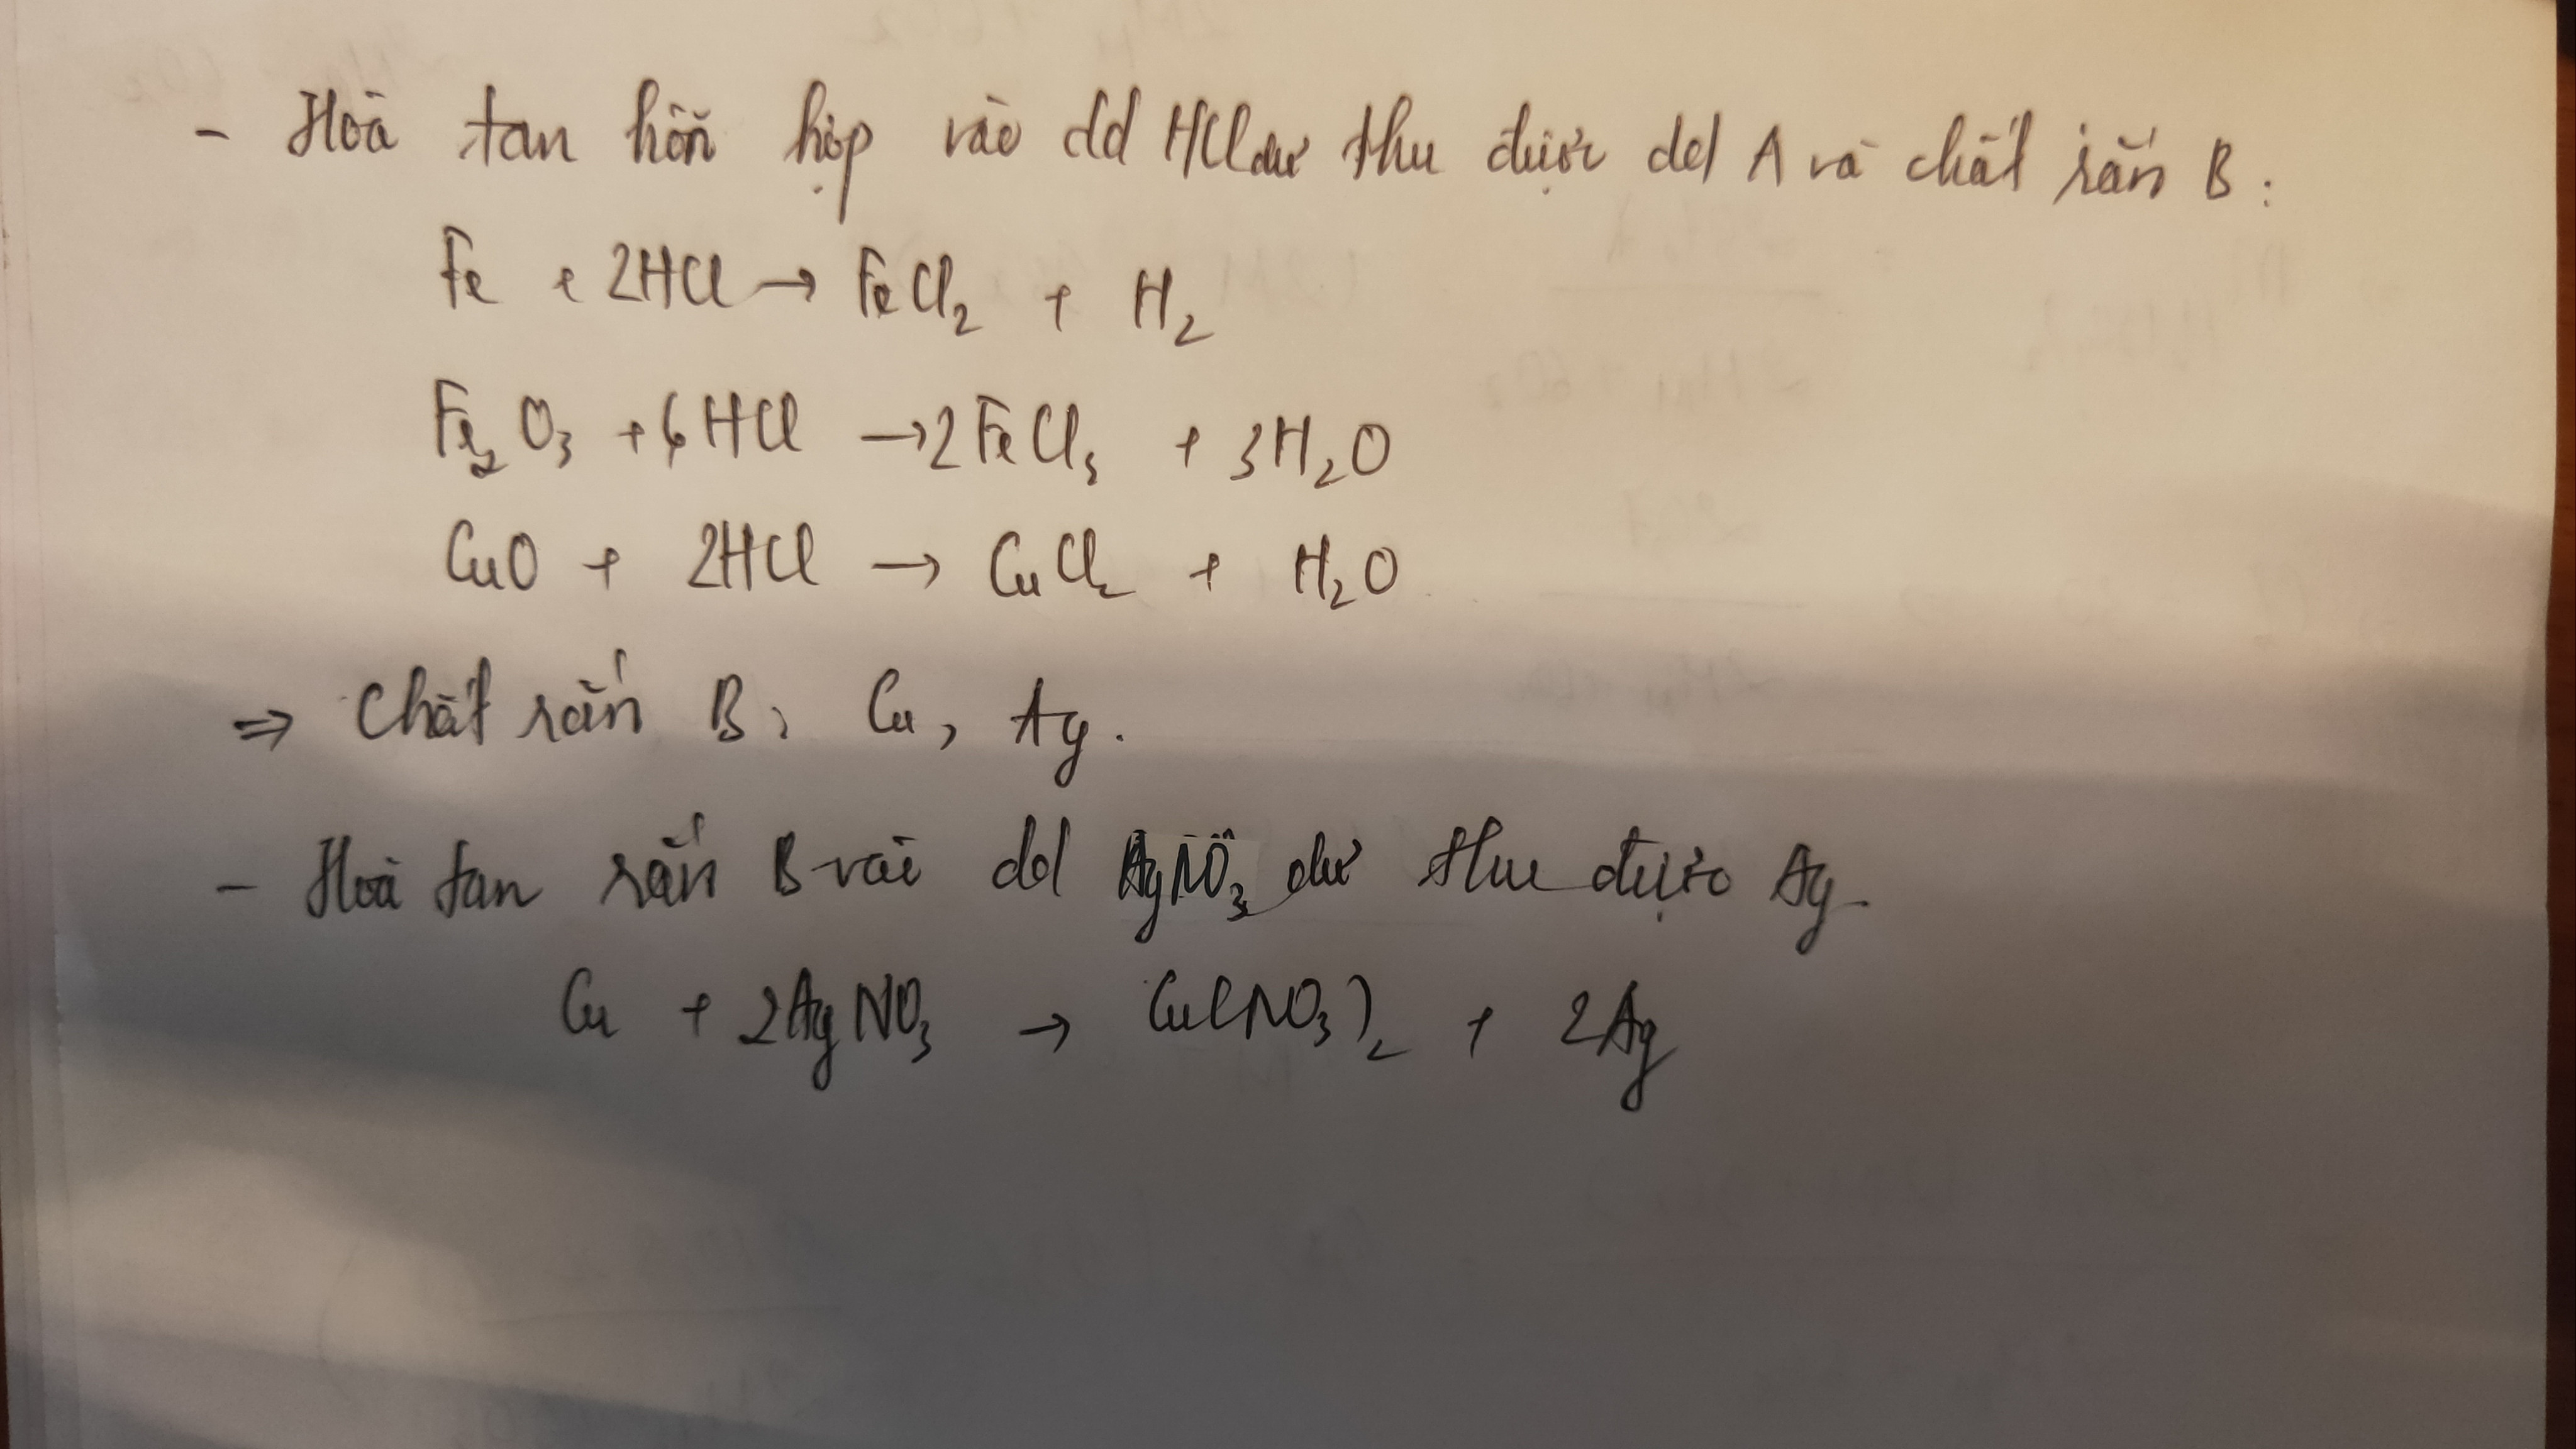 - Hoà tan hỗn hợp vào dd HCl dư thu được dd A và chất rắn B:
Fe + 2HCl → FeCl₂ + H₂
Fe₂O₃ + 6HCl → 2FeCl₃ + 3H₂O
CuO + 2HCl → CuCl₂ + H₂O
⇒ Chất rắn B: Cu, Ag.
- Hoà tan rắn B vài dd AgNO₃ dư thu được Ag.
Cu + 2AgNO₃ → Cu(NO₃)₂ + 2Ag